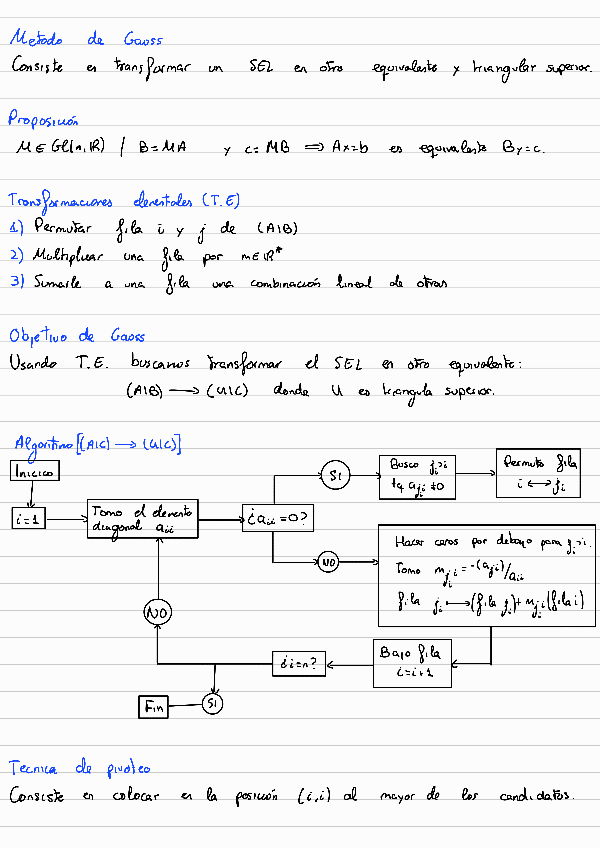 Metodo de Gauss
Consiste en transformar un SEL en otro equivalente y triangular superior.
Proposición
M ∈ Gl(n, ℝ) / B=MA y c=MB ⟹ Ax=b es equivalente By=c.
Transformaciones elementales (T.E)
1) Permutar fila i y j de (A|B)
2) Multiplicar una fila por m∈ℝ*
3) Sumarle a una fila una combinación lineal de otras
Objetivo de Gauss
Usando T.E. buscamos transformar el SEL en otro equivalente:
(A|B) ⟶ (U|C) donde U es triangula superior.
Algoritmo [(A|C) ⟶ (U|C)]
Inicico
i=1
Tomo el elemento
diagonal aii
¿aii=0?
SI
Busco j>i
tq aji≠0
Permuto fila
i ⟷ j
NO
Hacer ceros por debajo para j>i.
Tomo mji=-(aji)/aii
fila j ⟼ (fila j)+mji(fila i)
Bajo fila
i=i+1
¿i=n?
NO
SI
Fin
Tecnica de pivoteo
Consiste en colocar en la posición (i,i) al mayor de los candidatos.